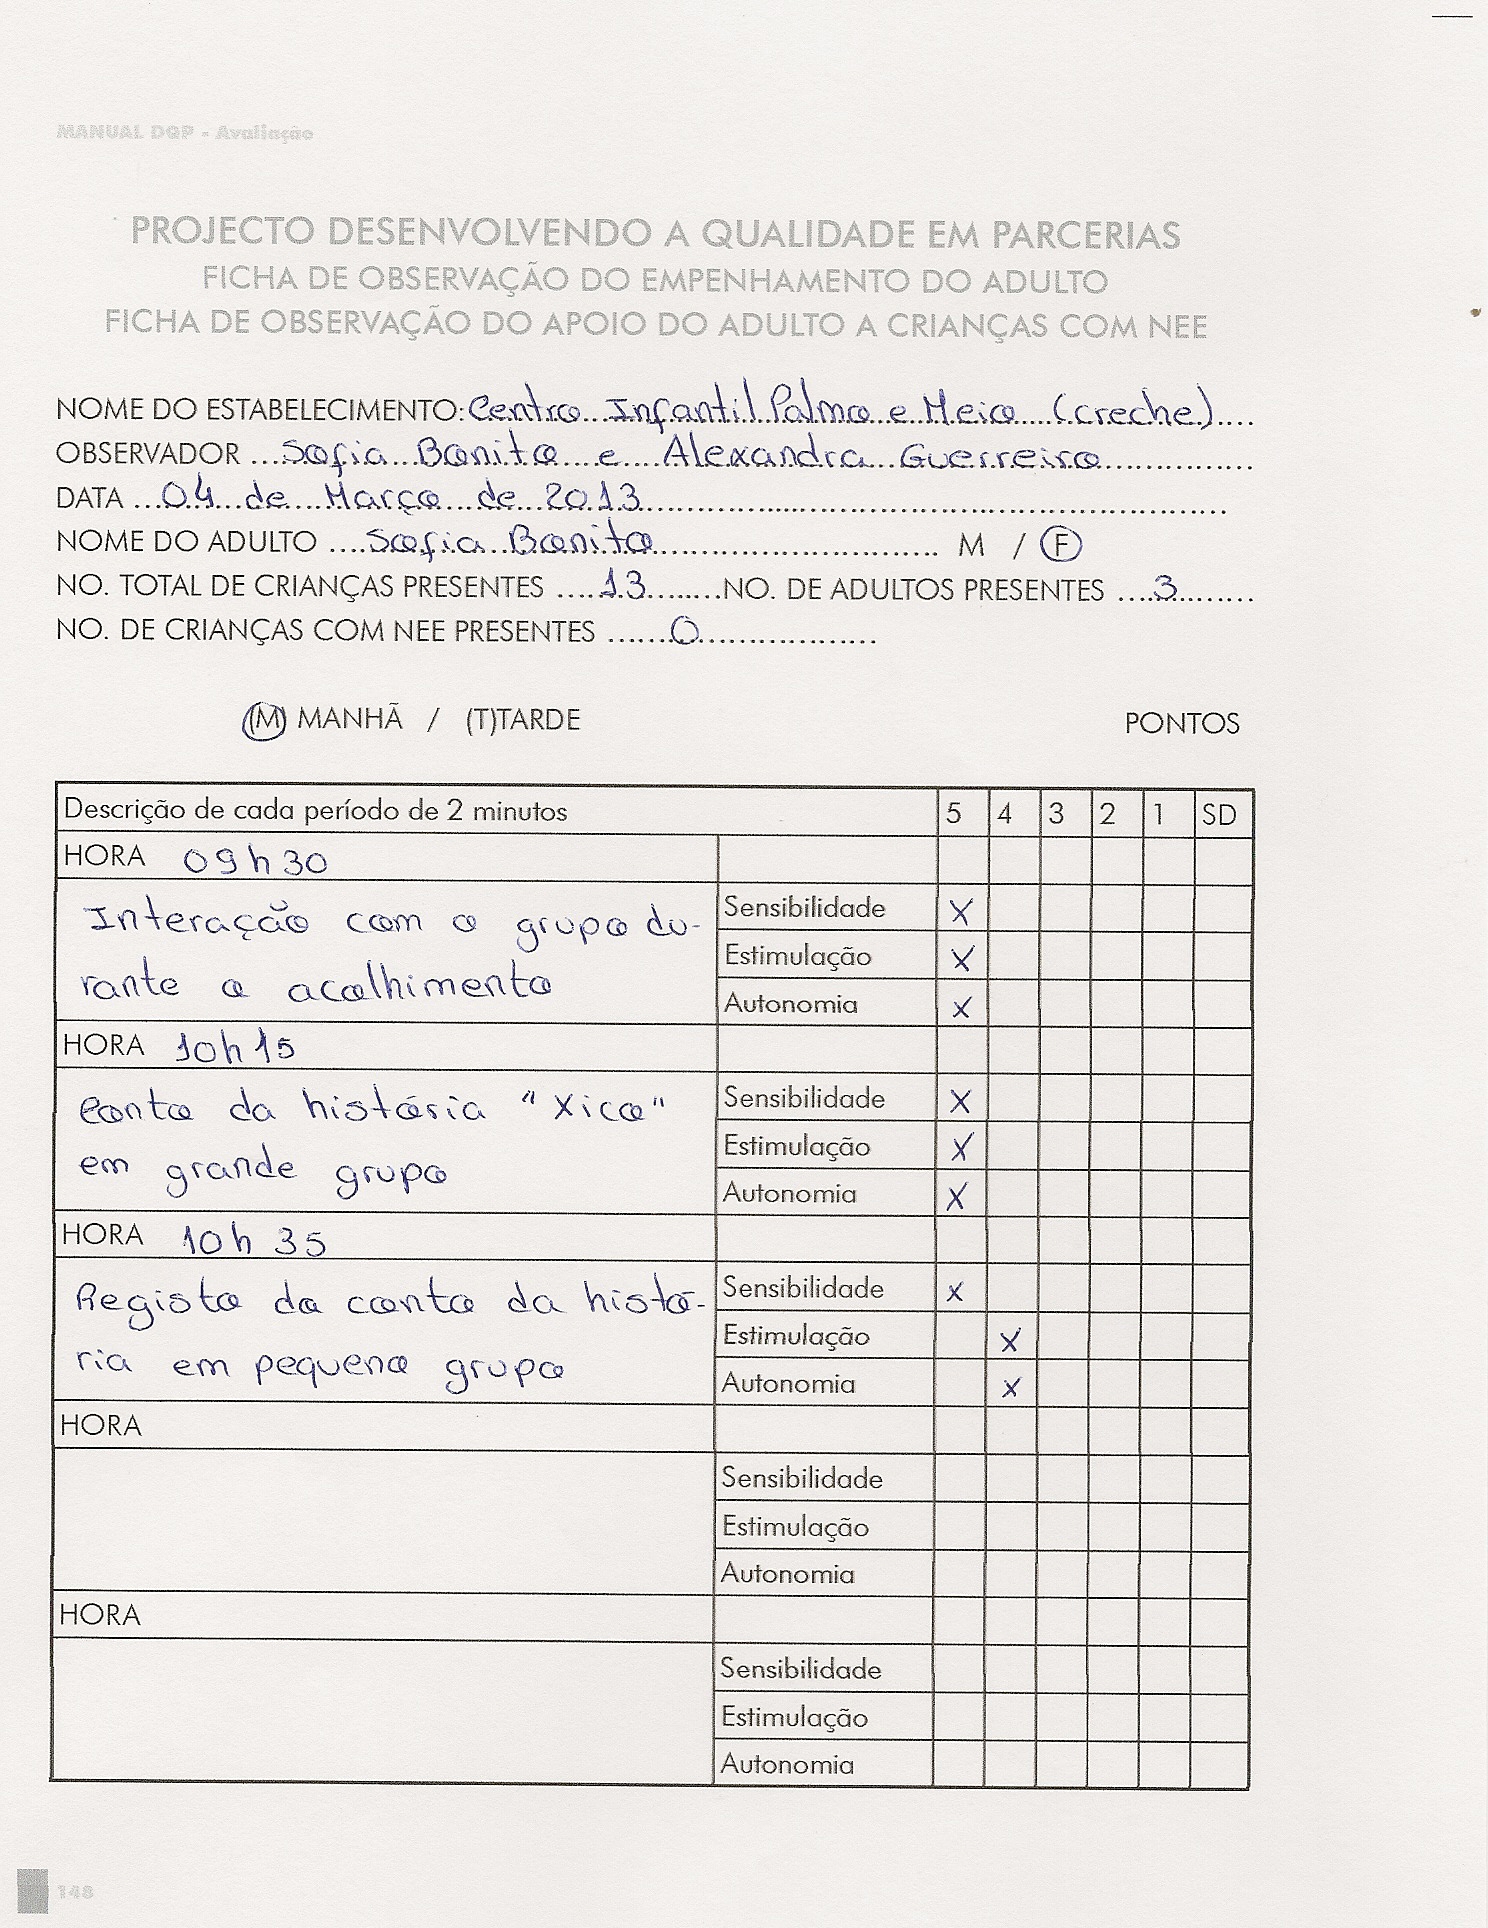 MANUAL DQP - Avaliação
PROJECTO DESENVOLVENDO A QUALIDADE EM PARCERIAS
FICHA DE OBSERVAÇÃO DO EMPENHAMENTO DO ADULTO
FICHA DE OBSERVAÇÃO DO APOIO DO ADULTO A CRIANÇAS COM NEE
NOME DO ESTABELECIMENTO: Centro Infantil Palmo e Meio (creche)
OBSERVADOR Sofia Bonito e Alexandra Guerreiro
DATA 04 de Março de 2013
NOME DO ADULTO Sofia Bonito M / F
NO. TOTAL DE CRIANÇAS PRESENTES 13 NO. DE ADULTOS PRESENTES 3
NO. DE CRIANÇAS COM NEE PRESENTES 0
(M) MANHÃ / (T)TARDE PONTOS
Descrição de cada período de 2 minutos 5 4 3 2 1 SD
HORA 09h30
Interação com o grupo du-
rante o acolhimento
Sensibilidade X
Estimulação X
Autonomia X
HORA 10h15
Conto da história "Xico"
em grande grupo
Sensibilidade X
Estimulação X
Autonomia X
HORA 10h35
Registo do conto da histó-
ria em pequeno grupo
Sensibilidade X
Estimulação X
Autonomia X
HORA
Sensibilidade
Estimulação
Autonomia
HORA
Sensibilidade
Estimulação
Autonomia
148